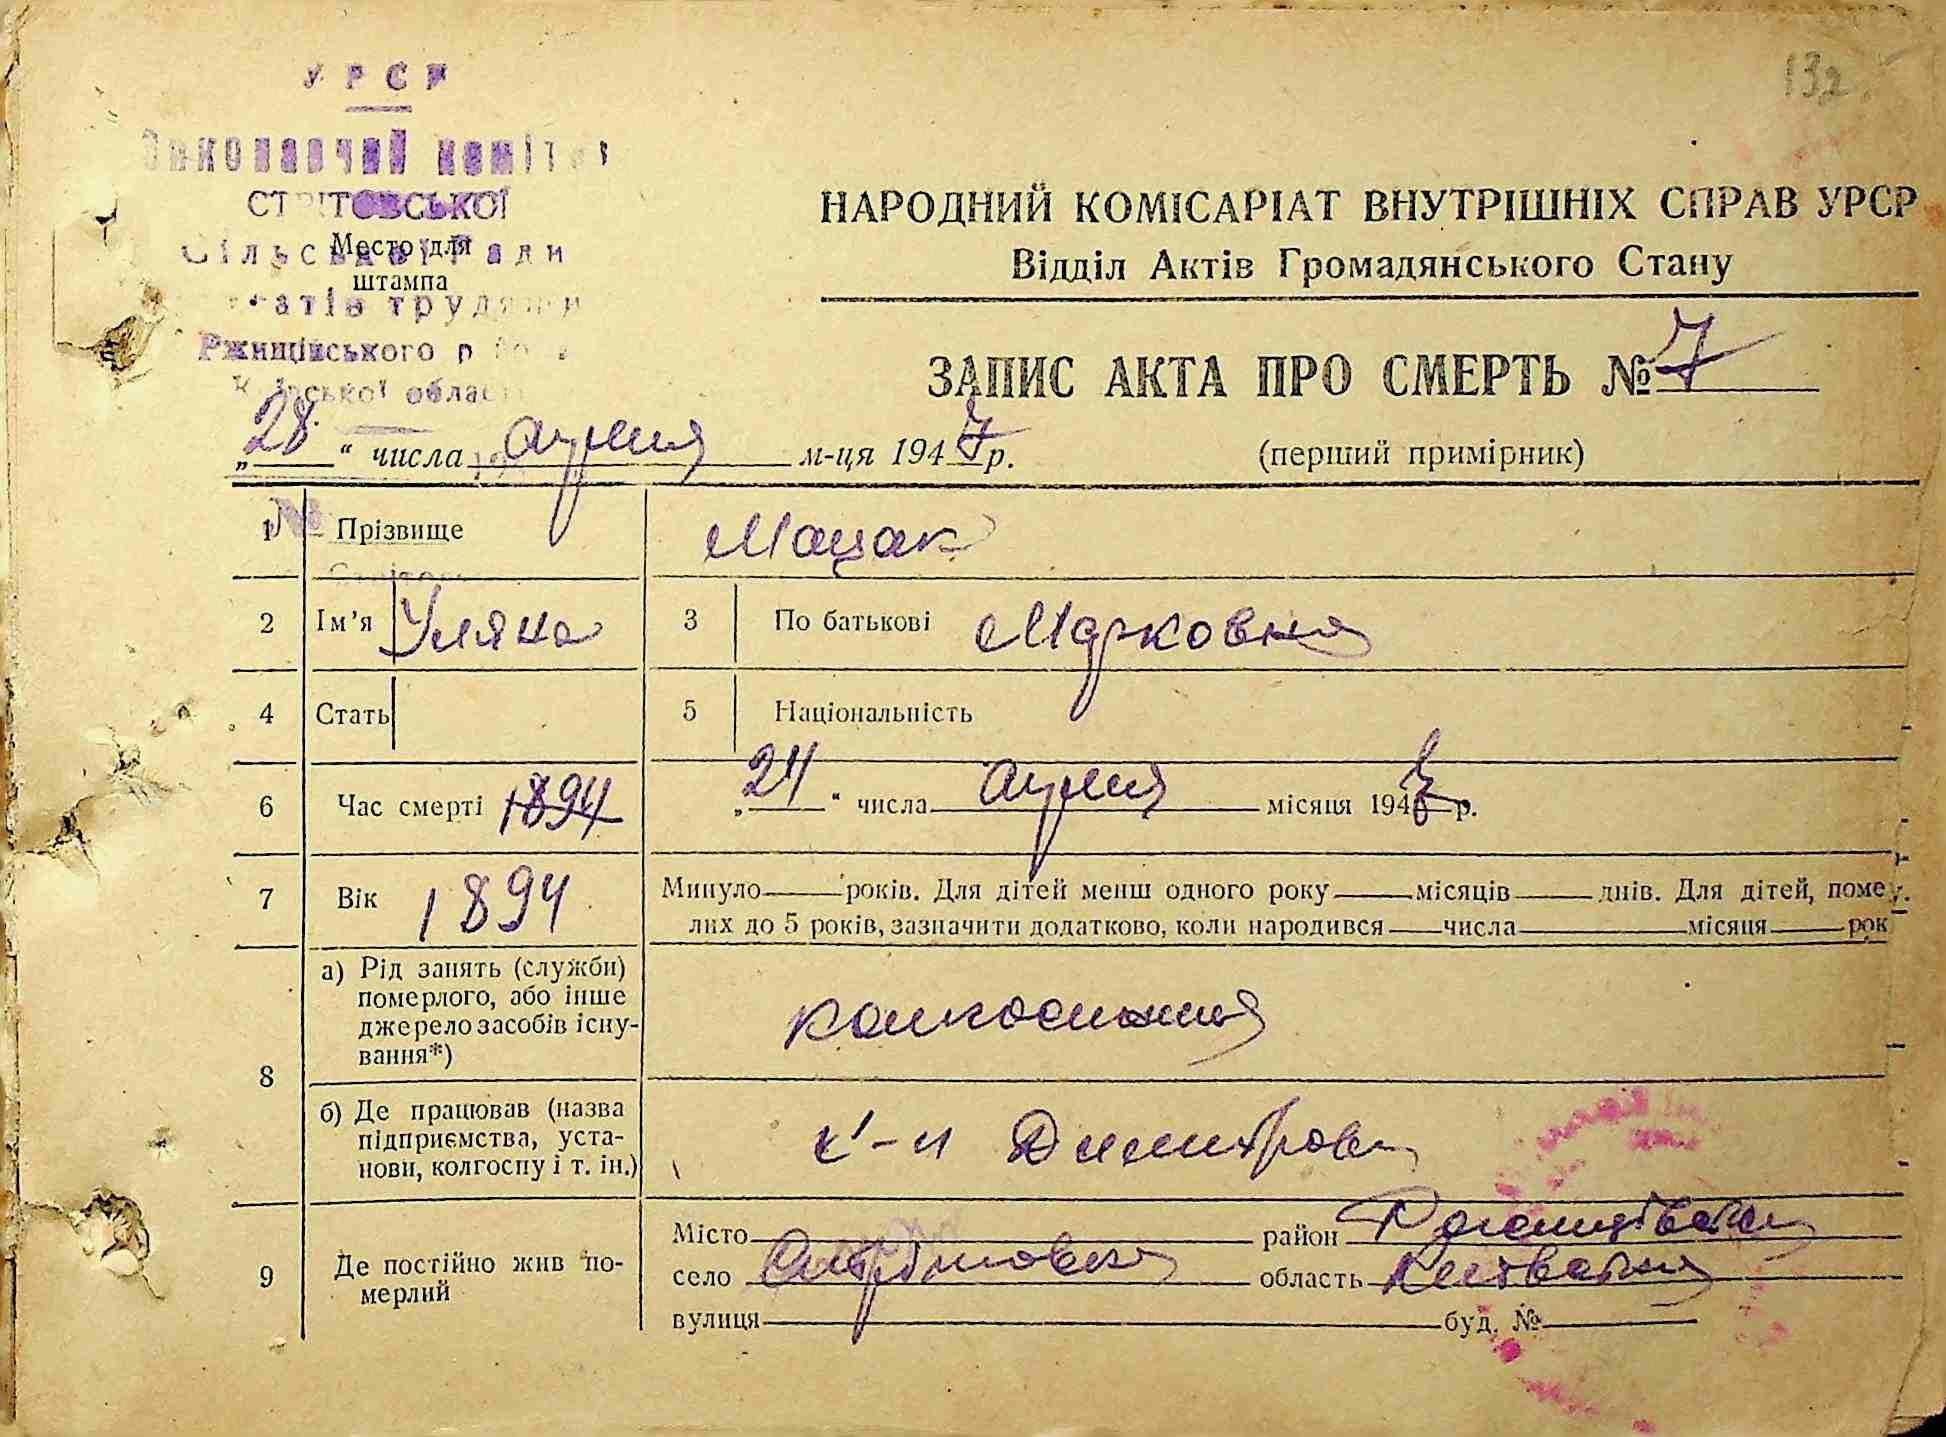 132
УРСР
Виконавчий комітет
СТРІТОВСЬКОЇ
Сільської Ради
Место для
штампа
трудящих
Ржищівського
Київської області
НАРОДНИЙ КОМІСАРІАТ ВНУТРІШНІХ СПРАВ УРСР
Відділ Актів Громадянського Стану
ЗАПИС АКТА ПРО СМЕРТЬ № 7
„28“ числа апреля м-ця 1947 р.
(перший примірник)
1 Прізвище Мацак
2 Ім'я Уляна 3 По батькові Марковна
4 Стать 5 Національність
6 Час смерті 1894 „24“ числа апреля місяця 1947 р.
7 Вік 1894 Минуло року років. Для дітей менш одного року місяців днів. Для дітей, поме-
лих до 5 років, зазначити додатково, коли народився числа місяця рок
8 а) Рід занять (служби)
померлого, або інше
джерело засобів існу-
вання*)
колхозница
б) Де працював (назва
підприємства, уста-
нови, колгоспу і т. ін.)
к-п Димитрова
9 Де постійно жив по-
мерлий
Місто район Ржищівська
село Стрітовка область Київська
вулиця буд. №